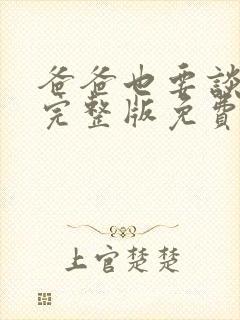 爸爸也要談
完整版免費
上官楚楚